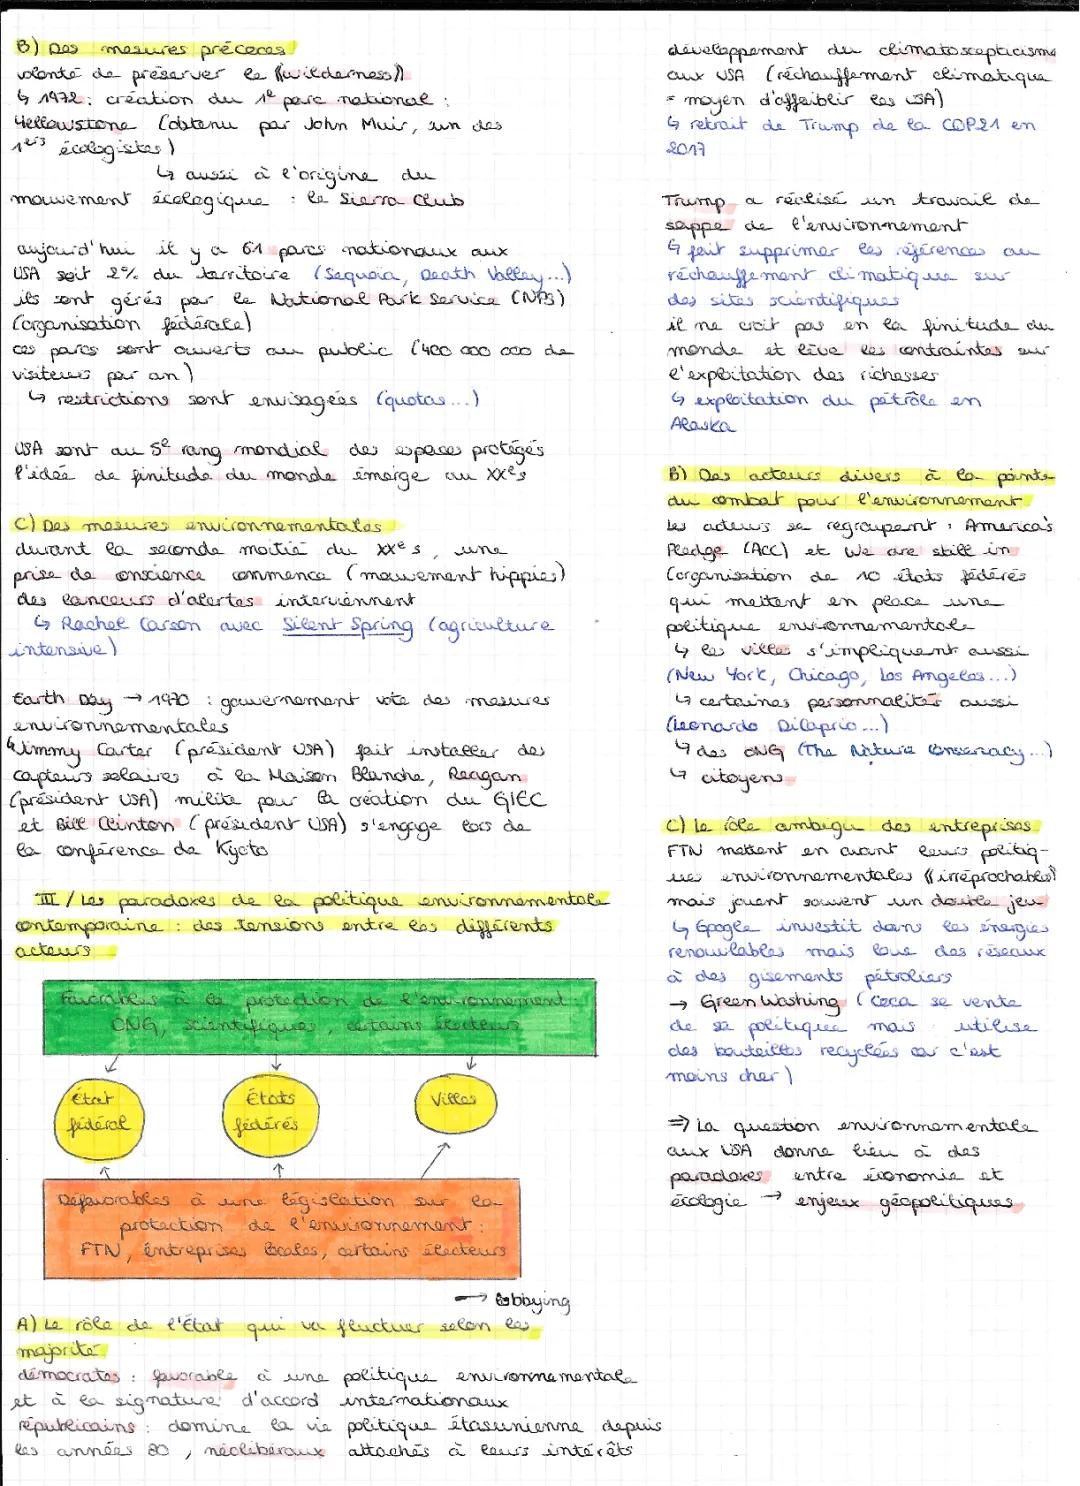 B) Des mesures précoces
volonté de préserver la "wilderness"
↳ 1972 : création du 1e parc national :
Yellowstone (obtenu par John Muir, un des
1ers écologistes)
↳ aussi à l'origine du
mouvement écologique : le Sierra Club
aujourd'hui il y a 61 parcs nationaux aux
USA soit 2% du territoire (Sequoia, Death Valley...)
ils sont gérés par le National Park Service (NPS)
(organisation fédérale)
ces parcs sont ouverts au public (400 000 000 de
visiteurs par an)
↳ restrictions sont envisagées (quotas...)
USA sont au 5e rang mondial des espaces protégés
l'idée de finitude du monde émerge au XXe s
C) Des mesures environnementales
durant la seconde moitié du XXe s, une
prise de conscience commence (mouvement hippies)
des lanceurs d'alertes interviennent
↳ Rachel Carson avec Silent Spring (agriculture
intensive)
Earth Day → 1970 : gouvernement vote des mesures
environnementales
↳ Jimmy Carter (président USA) fait installer des
capteurs solaires à la Maison Blanche, Reagan
(président USA) milite pour la création du GIEC
et Bill Clinton (président USA) s'engage lors de
la conférence de Kyoto
III / Les paradoxes de la politique environnementale
contemporaine : des tensions entre les différents
acteurs
Favorables à la protection de l'environnement :
ONG, scientifiques, certains électeurs
État
fédéral
États
fédérés
Villes
Défavorables à une législation sur la
protection de l'environnement :
FTN, entreprises locales, certains électeurs
→ lobbying
A) Le rôle de l'État qui va fluctuer selon les
majorité
démocrates : favorable à une politique environnementale
et à la signature d'accord internationaux
républicains : domine la vie politique étasunienne depuis
les années 80, néolibéraux attachés à leurs intérêts
développement du climatoscepticisme
aux USA (réchauffement climatique
= moyen d'affaiblir les USA)
↳ retrait de Trump de la COP21 en
2017
Trump a réalisé un travail de
sappe de l'environnement
↳ fait supprimer les références au
réchauffement climatique sur
des sites scientifiques
il ne croit pas en la finitude du
monde et lève les contraintes sur
l'exploitation des richesses
↳ exploitation du pétrôle en
Alaska
B) Des acteurs divers à la pointe
du combat pour l'environnement
les acteurs se regroupent : America's
Pledge (ACC) et We are still in
(organisation de 10 états fédérés
qui mettent en place une
politique environnementale
↳ les villes s'impliquent aussi
(New York, Chicago, Los Angeles...)
↳ certaines personnalités aussi
(Leonardo DiCaprio...)
↳ des ONG (The Nature Conservacy...)
↳ citoyens
C) Le rôle ambigu des entreprises
FTN mettent en avant leurs politiq-
ues environnementales "irréprochables"
mais jouent souvent un double jeu
↳ Google investit dans les énergies
renouvelables mais loue des réseaux
à des gisements pétroliers
→ Green Washing (Coca se vente
de sa politique mais utilise
des bouteilles recyclées car c'est
moins cher)
⇒ La question environnementale
aux USA donne lieu à des
paradoxes entre économie et
écologie → enjeux géopolitiques